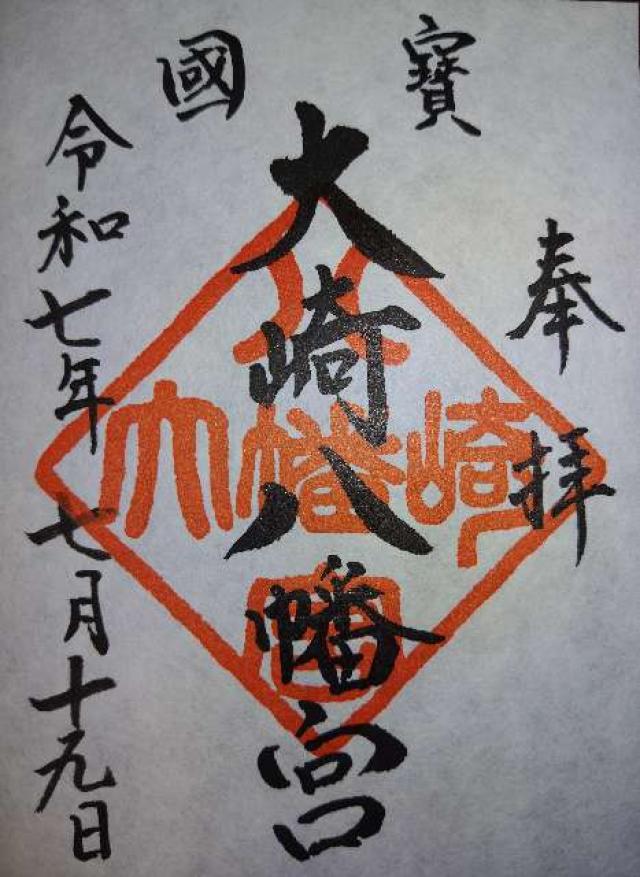 奉拝
國寶
大崎八幡宮
令和七年七月十九日
大崎八幡宮